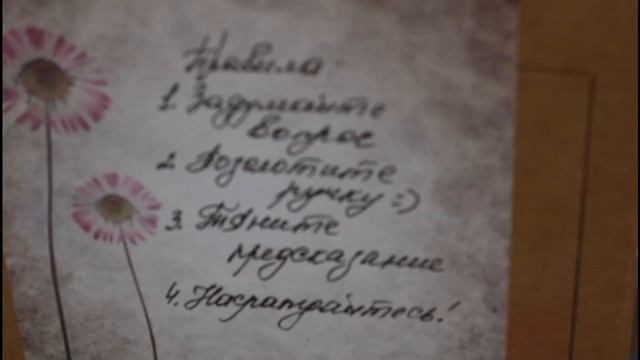 Правила
1. Задумайте
вопрос
2. Позолотите
ручку :)
3. Тяните
предсказание
4.